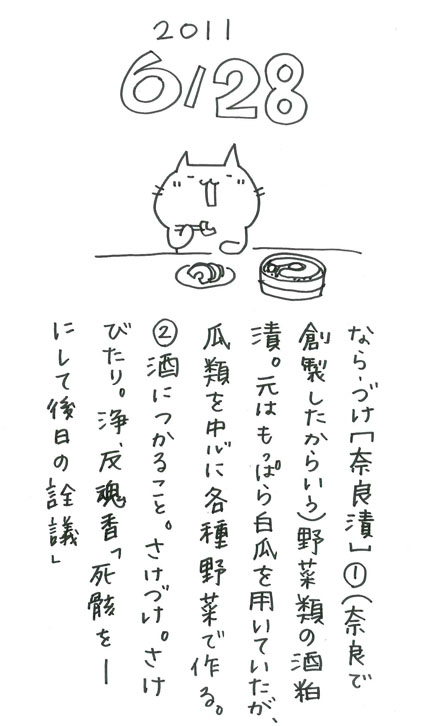 2011
6/28
なら‐づけ【奈良漬】①(奈良で
創製したからいう)野菜類の酒粕
漬。元はもっぱら白瓜を用いていたが、
瓜類を中心に各種野菜で作る。
②酒につかること。さけづけ。さけ
びたり。浄、反魂香「死骸を―
にして後日の詮議」